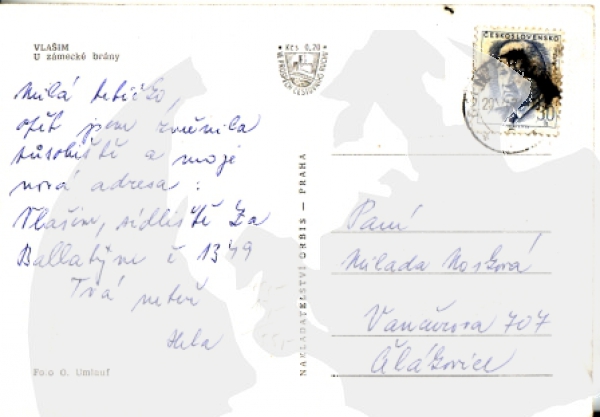 VLAŠIM
U zámecké brány
Kčs 0,20
VE PROSPĚCH CESTOVNÍHO RUCHU
ČESKOSLOVENSKO
30
Milá tetičko,
opět jsem změnila
působiště a moje
nová adresa:
Vlašim, sídliště Za
Ballatým č 1349
Tvá neteř
Hela
NAKLADATELSTVÍ ORBIS — PRAHA
Paní
Milada Nosková
Vančurova 707
Čelákovice
Foto O. Umlauf